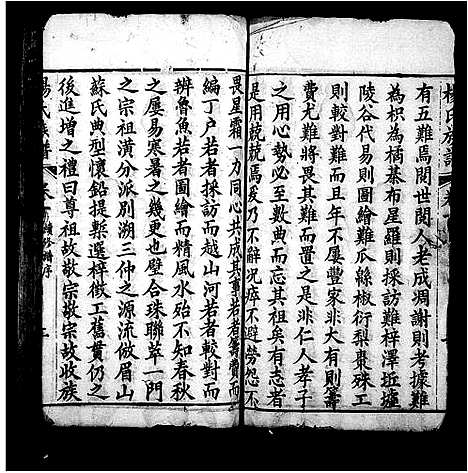 楊氏族譜 卷
有五難焉閱世閱人老成凋謝則考據難
為枳為橘棊布星羅則採訪難梓澤坵墟
陵谷代易則圖繪難瓜綿椒衍梨棗殊工
則較對難而且年不屢豐家非大有則籌
費尤難將畏其難而置之是非仁人孝子
之用心勢必至數典而忘其祖矣有志者
是用兢兢焉爰乃不辭况瘁不避勞怨不
畏星霜一力同心共成其事若者籌費而
編丁户若者採訪而越山河若者較對而
辨魯魚若者圖繪而精風水殆不知春秋
之屢易寒暑之幾更也璧合珠聯萃一門
之宗祖潢分派别溯三仲之源流倣眉山
蘇氏典型懷鉛提槧選梓做工舊貫仍之
後進增之禮曰尊祖故敬宗敬宗故收族
楊氏族譜 卷 續修譜序 二